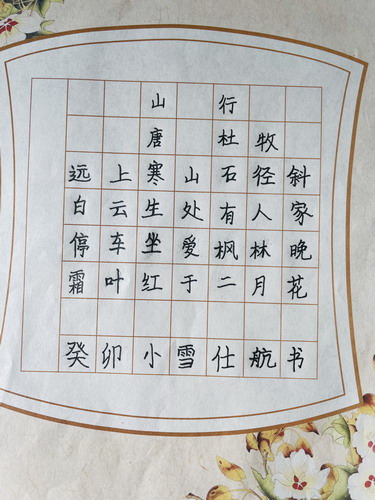 山行
唐 杜牧
远上寒山石径斜
白云生处有人家
停车坐爱枫林晚
霜叶红于二月花
癸卯小雪仕航书